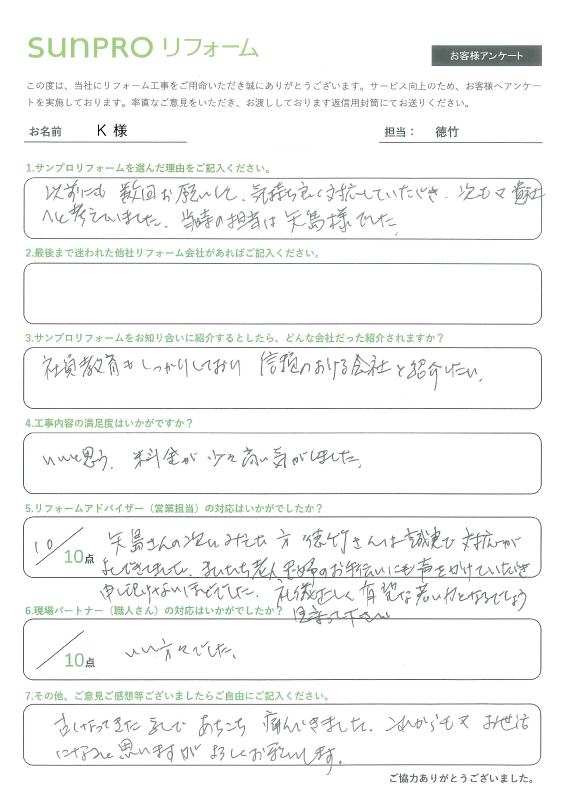 SUNPRO リフォーム
お客様アンケート
この度は、当社にリフォーム工事をご用命いただき誠にありがとうございます。サービス向上のため、お客様へアンケー
トを実施しております。率直なご意見をいただき、お渡ししております返信用封筒にてお送りください。
お名前 K 様 担当： 徳竹
1.サンプロリフォームを選んだ理由をご記入ください。
以前にも 数回お願いして、気持ち良く対応していただき、次もマ 貴社
へと考えていました。当時の担当は 矢島様でした。
2.最後まで迷われた他社リフォーム会社があればご記入ください。
3.サンプロリフォームをお知り合いに紹介するとしたら、どんな会社だった紹介されますか？
社員教育もしっかりしており 信頼のおける会社と紹介したい。
4.工事内容の満足度はいかがですか？
いいと思う。 料金が 少々高い気がしました。
5.リフォームアドバイザー（営業担当）の対応はいかがでしたか？
10/10点 矢島さんの次にみえた方 徳竹さんは誠実で 対応が
よくできてまして、 老人夫婦のお手伝いにも声をかけていただき
申し訳けないほどでした。 礼儀正しく 有望な若い力となるでしょう
見守って下さい
6.現場パートナー（職人さん）の対応はいかがでしたか？
/10点 いい方々でした。
7.その他、ご意見ご感想等ございましたらご自由にご記入ください。
古くなってきた家で あちこち 痛んできました。これからもマ お世話
になると思いますが よろしくお願いします。
ご協力ありがとうございました。